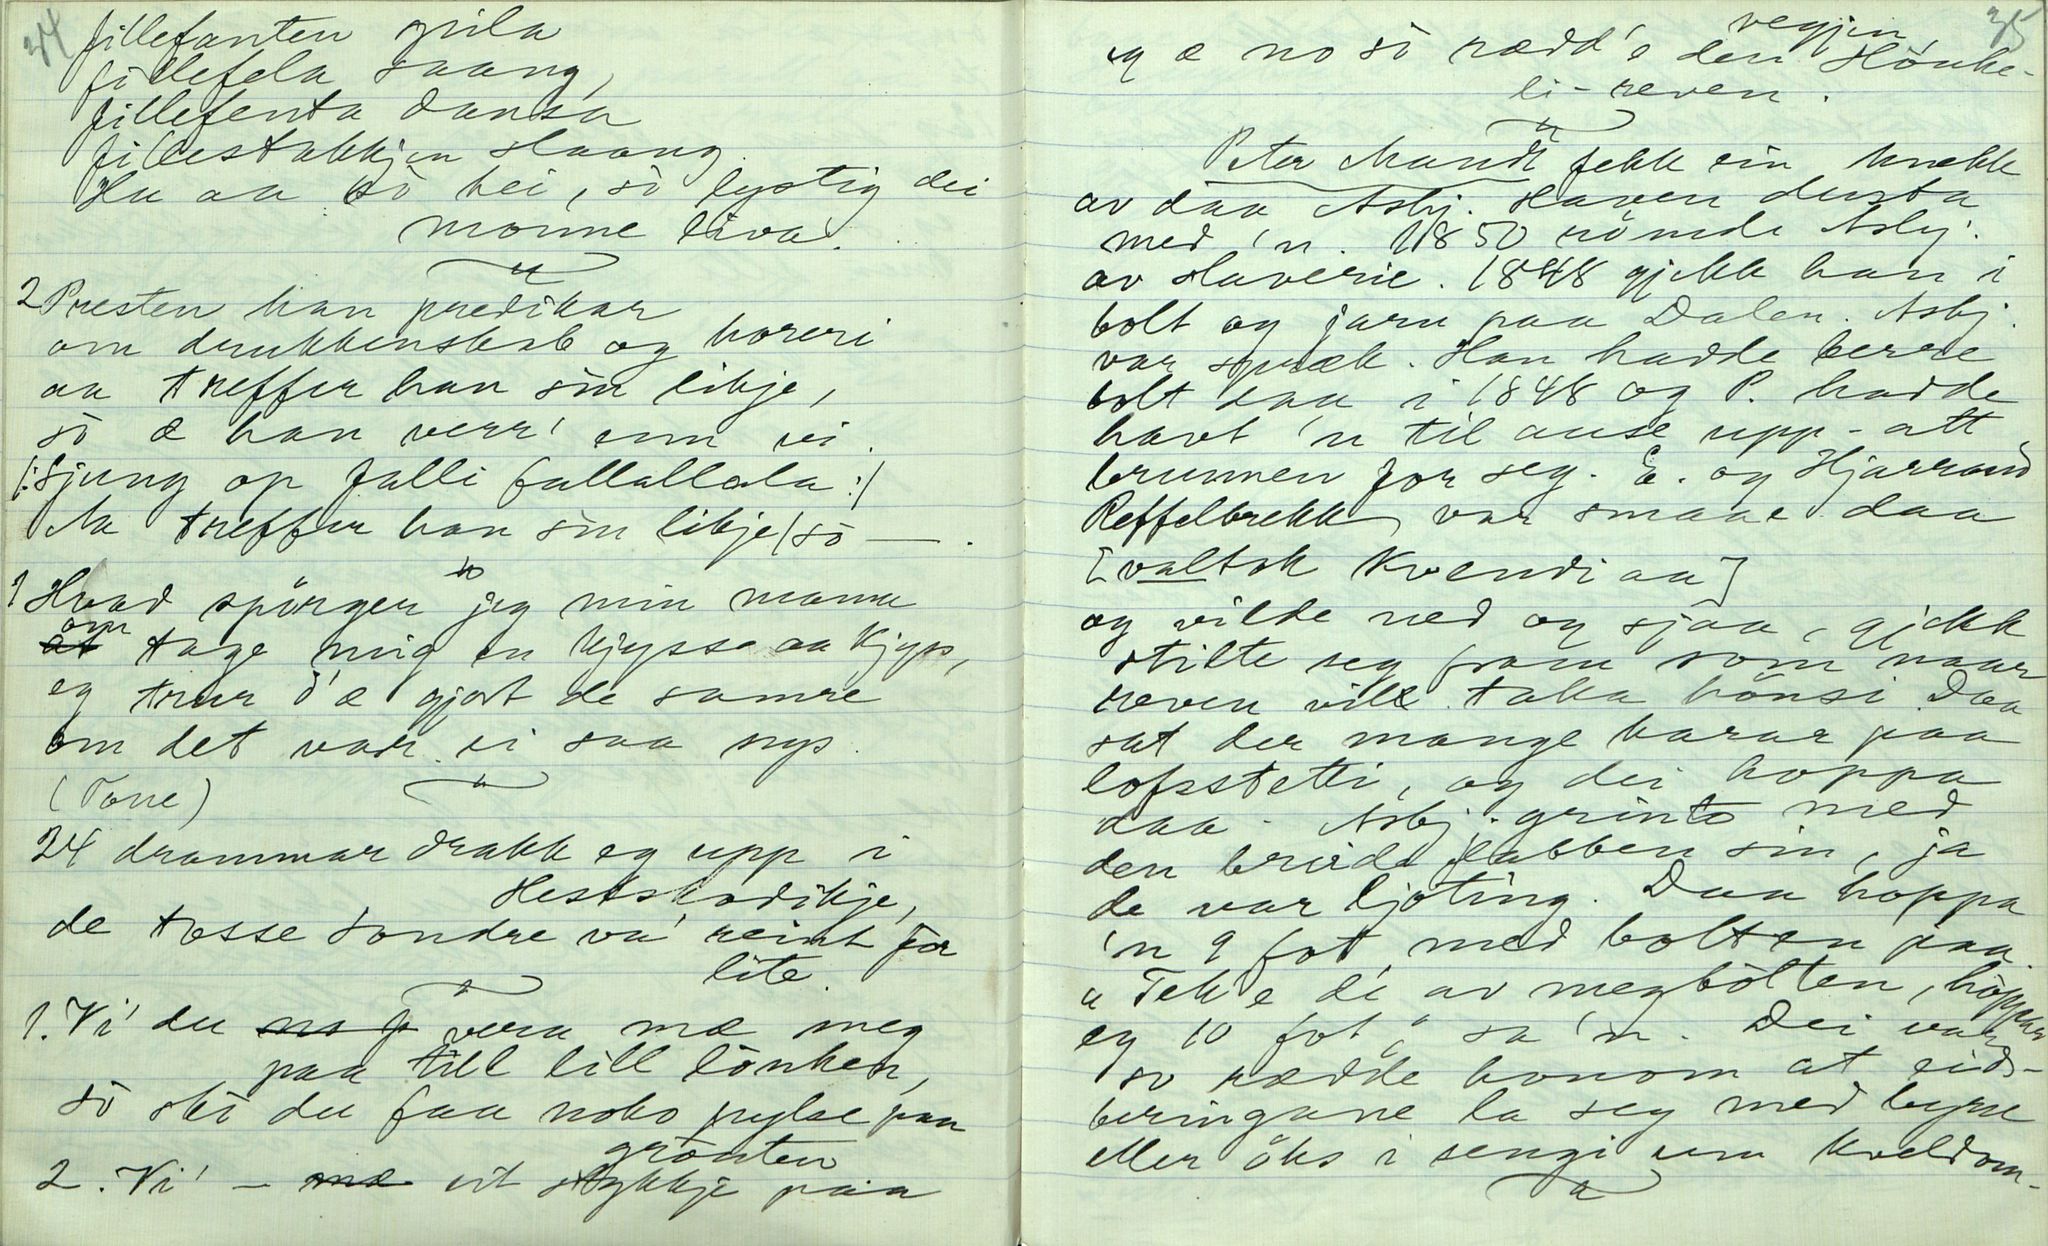 34
fillefanten spila
fillefela saang,
fillefenta dansa
fillestakkjen slaang.
Hu aa hò hei, sò lystig dei
monne liva.
2 Presten han predikar
om drukkenskab og horeri
aa treffer han sin likje,
sò æ han verr' enn vi.
/: Sjung op falli fallallala :/
Aa treffer han sin likje / sò —.
1 Hvad spörger jeg min mamma
om tage mig en kjysse aa Kjys,
eg trur d'æ gjort de samre
om det var ei saa nys.
(Tone)
24 drammar drakk eg upp i
Hestskodikje,
de tosse sondre va' reint for
lite.
1. Vi' du vera mæ meg
paa till lill lönken,
sò ska du faa noko pylse paa
grönten
2. Vi' — eit stykkje paa
35
vegjen
eg æ no sò rædd'e den Hönke-
li-reven.
Peter Mandt fekk ein knekk
av daa Asbj. Haven dusta
med 'n. 1850 römde Asbj.
av slaverie. 1848 gjekk han i
bolt og jarn paa Dalen. Asbj.
var spræk. Han hadde berre
bolt daa i 1848 og P. hadde
havt 'n til ause upp-att
brunnen for seg. E. og Hjarrand
Reffelbrekk var smaae daa
[valtok Kvendiaa]
og vilde ned og sjaa, gjekk
stilte seg fram som naar
reven vill taka hönsi. Daa
sat der mange karar paa
lofsstetti, og dei hoppa
daa. Asbj. grinte med
den breide flabben sin, ja
de var ljoting. Daa hoppa
'n 9 fot med bolten paa.
"Tek e di av meg bolten, hoppar
eg 10 fot" sa 'n. Dei var
so rædde honom at eids-
beringane la seg med byrse
eller öks i sengi um kveldom-